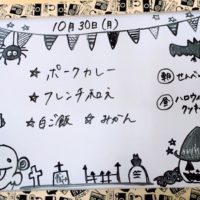 10月30日(月)
☆ ポークカレー
☆ フレンチ和え
☆ 白ご飯 ☆ みかん
朝 せんべ
ハロウ
クッキ